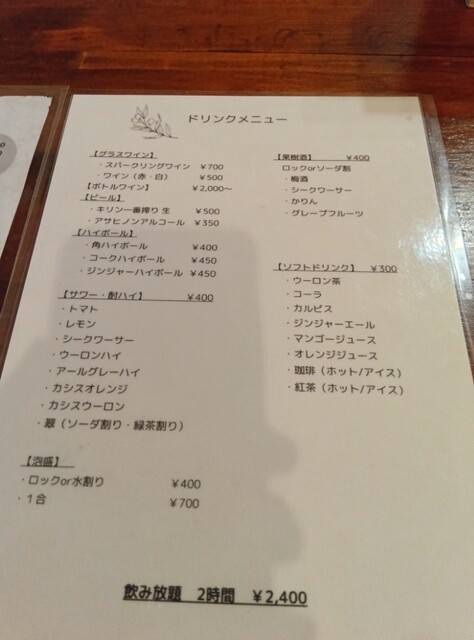 ドリンクメニュー
【グラスワイン】
・スパークリングワイン ¥700
・ワイン（赤・白） ¥500
【ボトルワイン】 ¥2,000～
【ビール】
・キリン一番搾り 生 ¥500
・アサヒノンアルコール ¥350
【ハイボール】
・角ハイボール ¥400
・コークハイボール ¥450
・ジンジャーハイボール ¥450
【サワー・酎ハイ】 ¥400
・トマト
・レモン
・シークワーサー
・ウーロンハイ
・アールグレーハイ
・カシスオレンジ
・カシスウーロン
・翠（ソーダ割り・緑茶割り）
【泡盛】
・ロックor水割り ¥400
・1合 ¥700
【果樹酒】 ¥400
ロックorソーダ割
・梅酒
・シークワーサー
・かりん
・グレープフルーツ
【ソフトドリンク】 ¥300
・ウーロン茶
・コーラ
・カルピス
・ジンジャーエール
・マンゴージュース
・オレンジジュース
・珈琲（ホット/アイス）
・紅茶（ホット/アイス）
飲み放題 2時間 ¥2,400